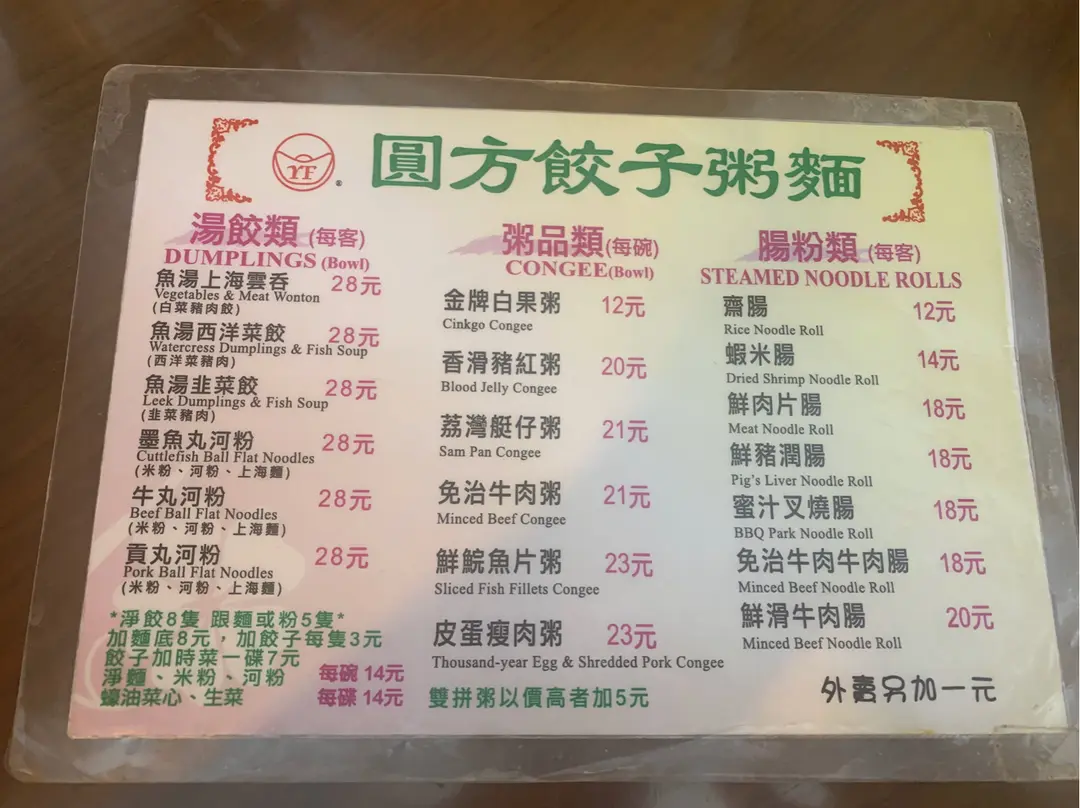 YF
®
圓方餃子粥麵
湯餃類 (每客)
DUMPLINGS (Bowl)
魚湯上海雲吞 28元
Vegetables & Meat Wonton
(白菜豬肉餃)
魚湯西洋菜餃 28元
Watercress Dumplings & Fish Soup
(西洋菜豬肉)
魚湯韭菜餃 28元
Leek Dumplings & Fish Soup
(韭菜豬肉)
墨魚丸河粉 28元
Cuttlefish Ball Flat Noodles
(米粉、河粉、上海麵)
牛丸河粉 28元
Beef Ball Flat Noodles
(米粉、河粉、上海麵)
貢丸河粉 28元
Pork Ball Flat Noodles
(米粉、河粉、上海麵)
*淨餃8隻 跟麵或粉5隻*
加麵底8元，加餃子每隻3元
餃子加時菜一碟7元
淨麵、米粉、河粉 每碗 14元
蠔油菜心、生菜 每碟 14元
粥品類(每碗)
CONGEE(Bowl)
金牌白果粥 12元
Cinkgo Congee
香滑豬紅粥 20元
Blood Jelly Congee
荔灣艇仔粥 21元
Sam Pan Congee
免治牛肉粥 21元
Minced Beef Congee
鮮鯇魚片粥 23元
Sliced Fish Fillets Congee
皮蛋瘦肉粥 23元
Thousand-year Egg & Shredded Pork Congee
雙拼粥以價高者加5元
腸粉類 (每客)
STEAMED NOODLE ROLLS
齋腸 12元
Rice Noodle Roll
蝦米腸 14元
Dried Shrimp Noodle Roll
鮮肉片腸 18元
Meat Noodle Roll
鮮豬潤腸 18元
Pig's Liver Noodle Roll
蜜汁叉燒腸 18元
BBQ Park Noodle Roll
免治牛肉牛肉腸 18元
Minced Beef Noodle Roll
鮮滑牛肉腸 20元
Minced Beef Noodle Roll
外賣另加一元